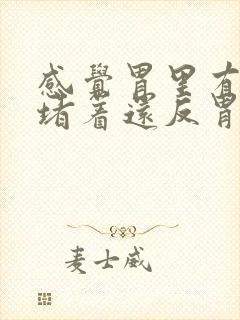 感覺胃里有
堵著還反胃
麦士威